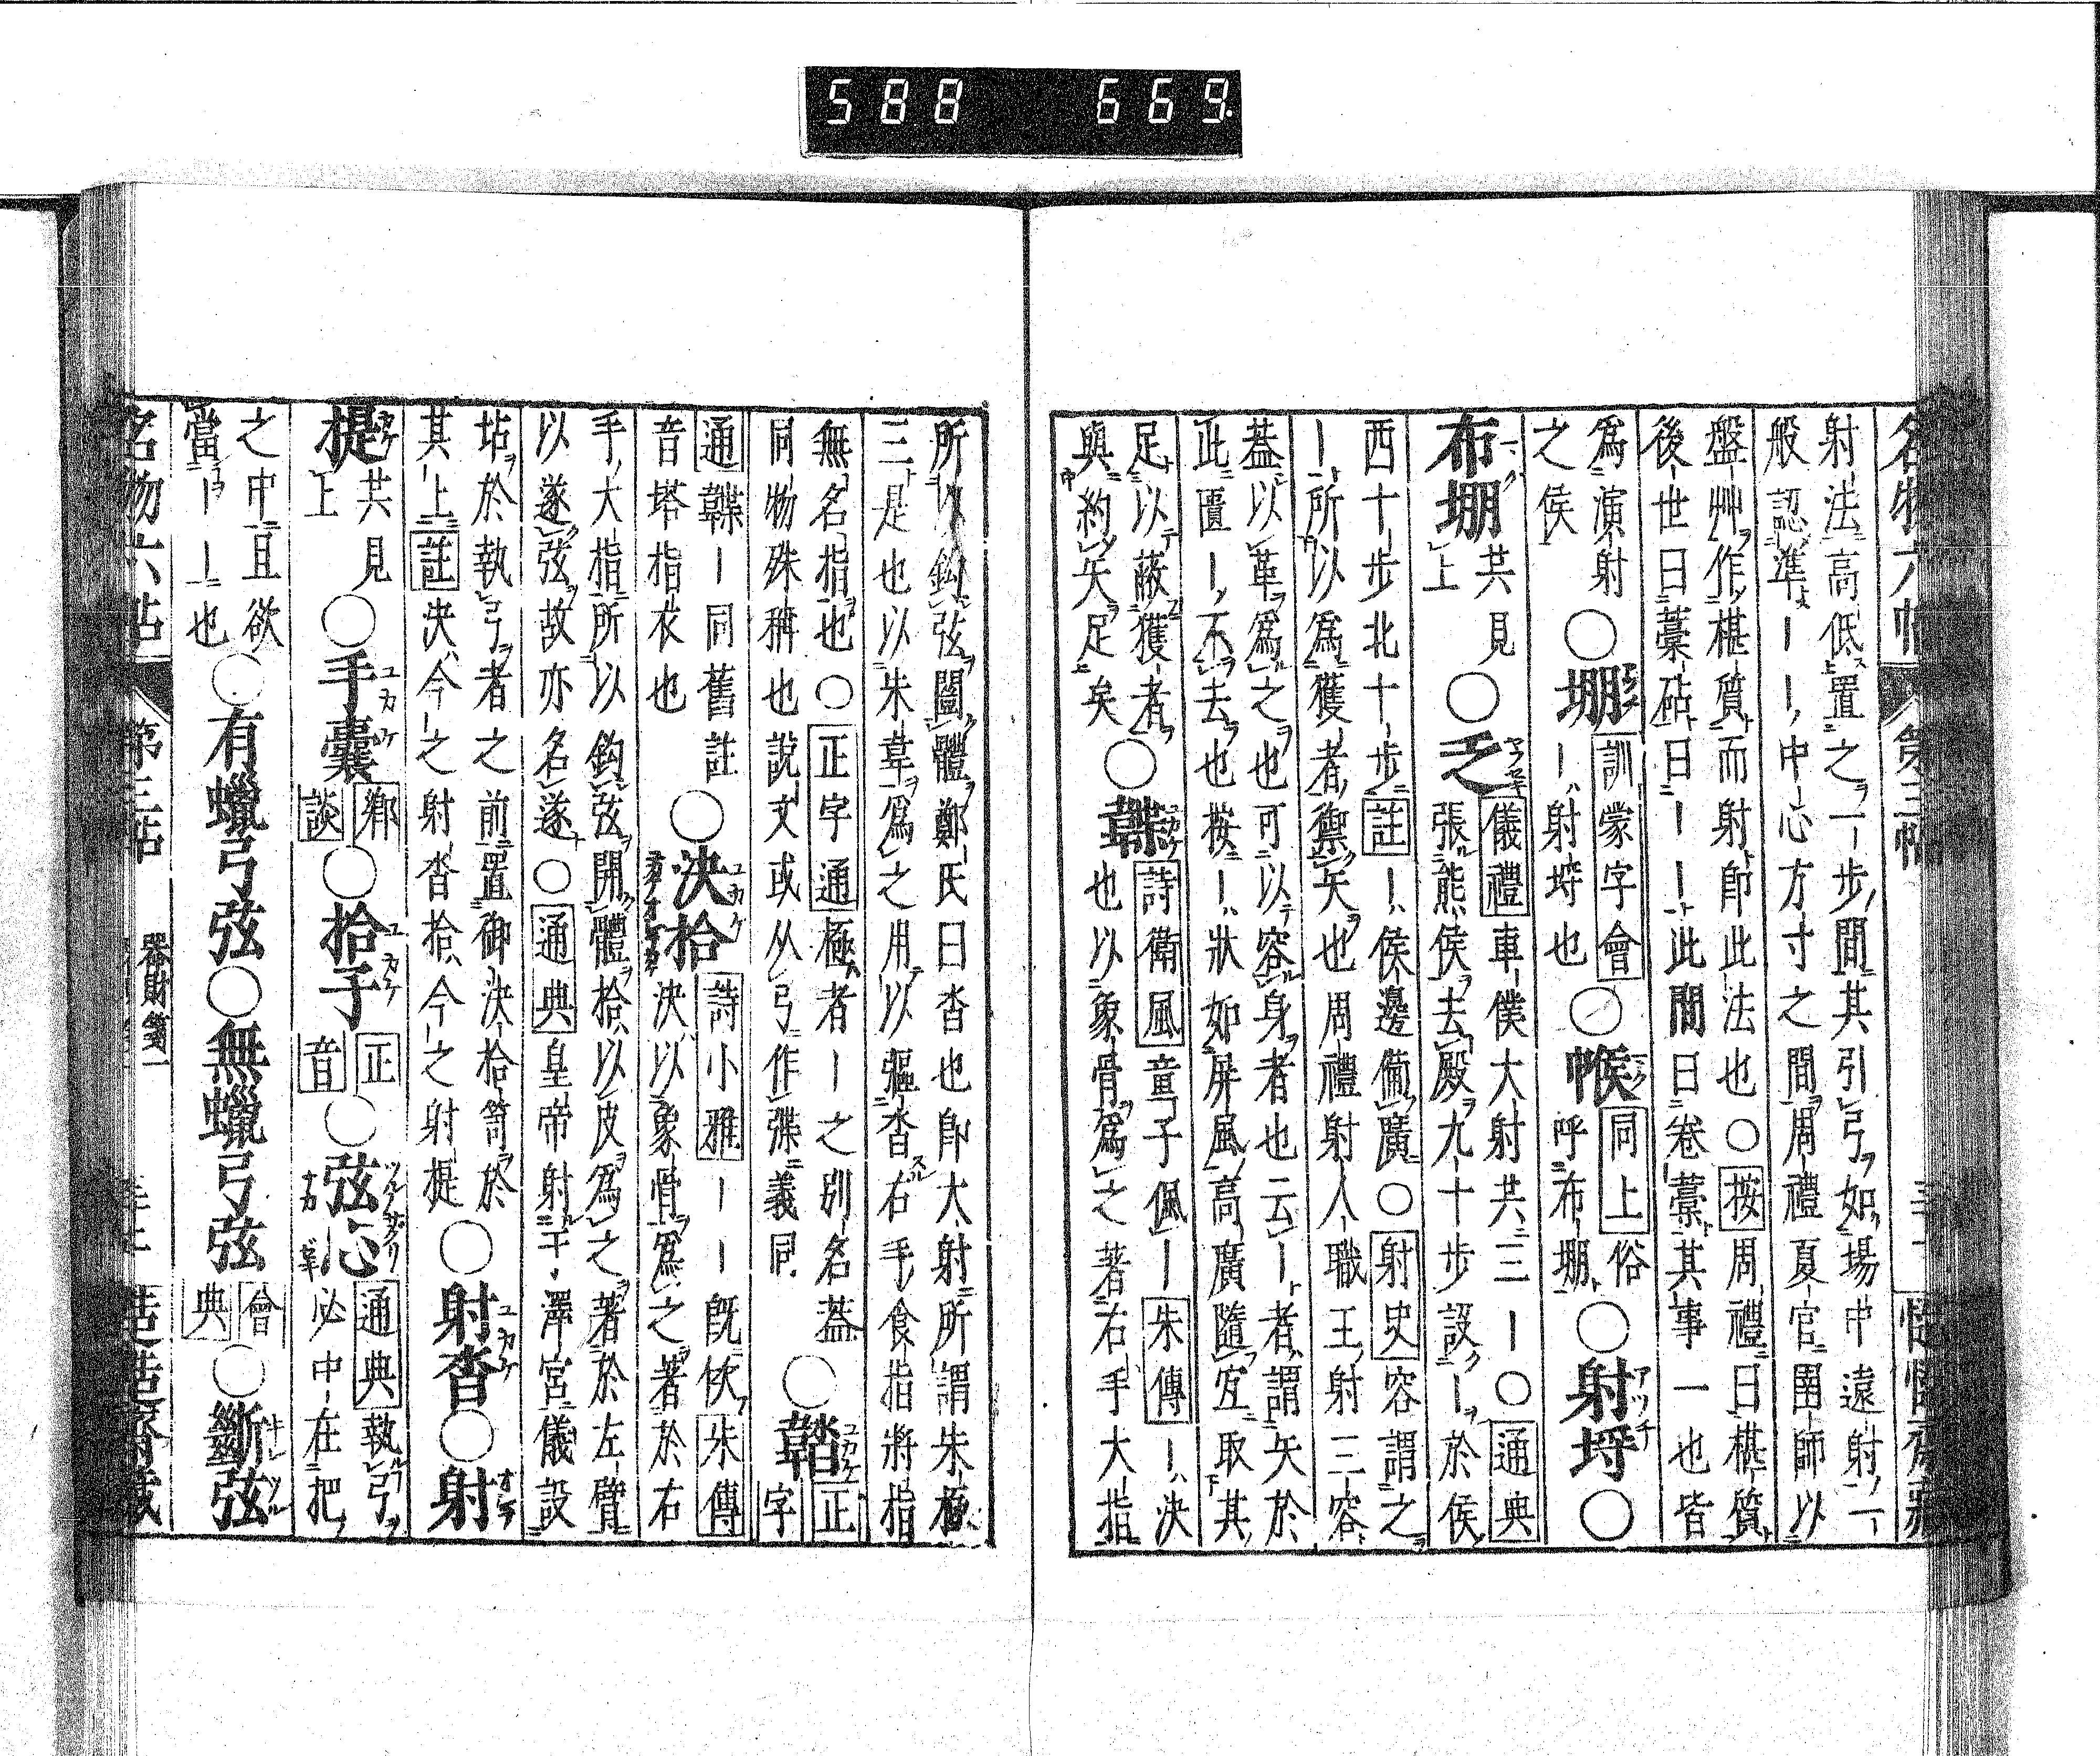 588 669
射法高低置之一步間其引弓如場中遠射一
般認準――中心方寸之間周禮夏官圉師以
盤艸作椹質而射卽此法也○按周禮曰椹質
後世曰藁砧曰――此間曰卷藁其事一也皆
爲演射
之侯
○堋訓蒙字會
―射埒也
○帿同上俗
呼布堋
○射埒○
布堋共見
上
○乏儀禮車僕大射共三―○通典
張熊侯去殿九十步設―於侯
西十步北十步註―侯邊備廣○射史容謂之
―所以爲獲者禦矢也周禮射人職王射三容
蓋以革爲之也可以容身者也云―者謂矢於
此匱―不去也按―狀如屏風高廣隨宜取其
足以蔽獲者
與約矢足矣
○韘詩衛風童子佩―朱傳―決
也以象骨爲之著右手大指
所以鈎弦闓體鄭氏曰沓也卽大射所謂朱極
三是也以朱韋爲之用以彄沓右手食指將指
無名指也○正字通極者―之別名蓋
同物殊稱也說文或从弓作弽義同
○韜正字
通韘―同舊註
音塔指衣也
○決拾詩小雅――旣佽朱傳
決以象骨爲之著於右
手大指所以鈎弦開體拾以皮爲之著於左臂
以遂弦故亦名遂○通典皇帝射于澤宮儀設
坫於執弓者之前置御決拾笥於
其上註決今之射沓拾今之射提
○射沓○射
提共見
上
○手囊鄕
談
○拾子正
音
○弦心通典執弓
必中在把
之中且欲
當――也
○有蠟弓弦○無蠟弓弦會
典
○斷弦
名物六帖 第三帖 器財箋一